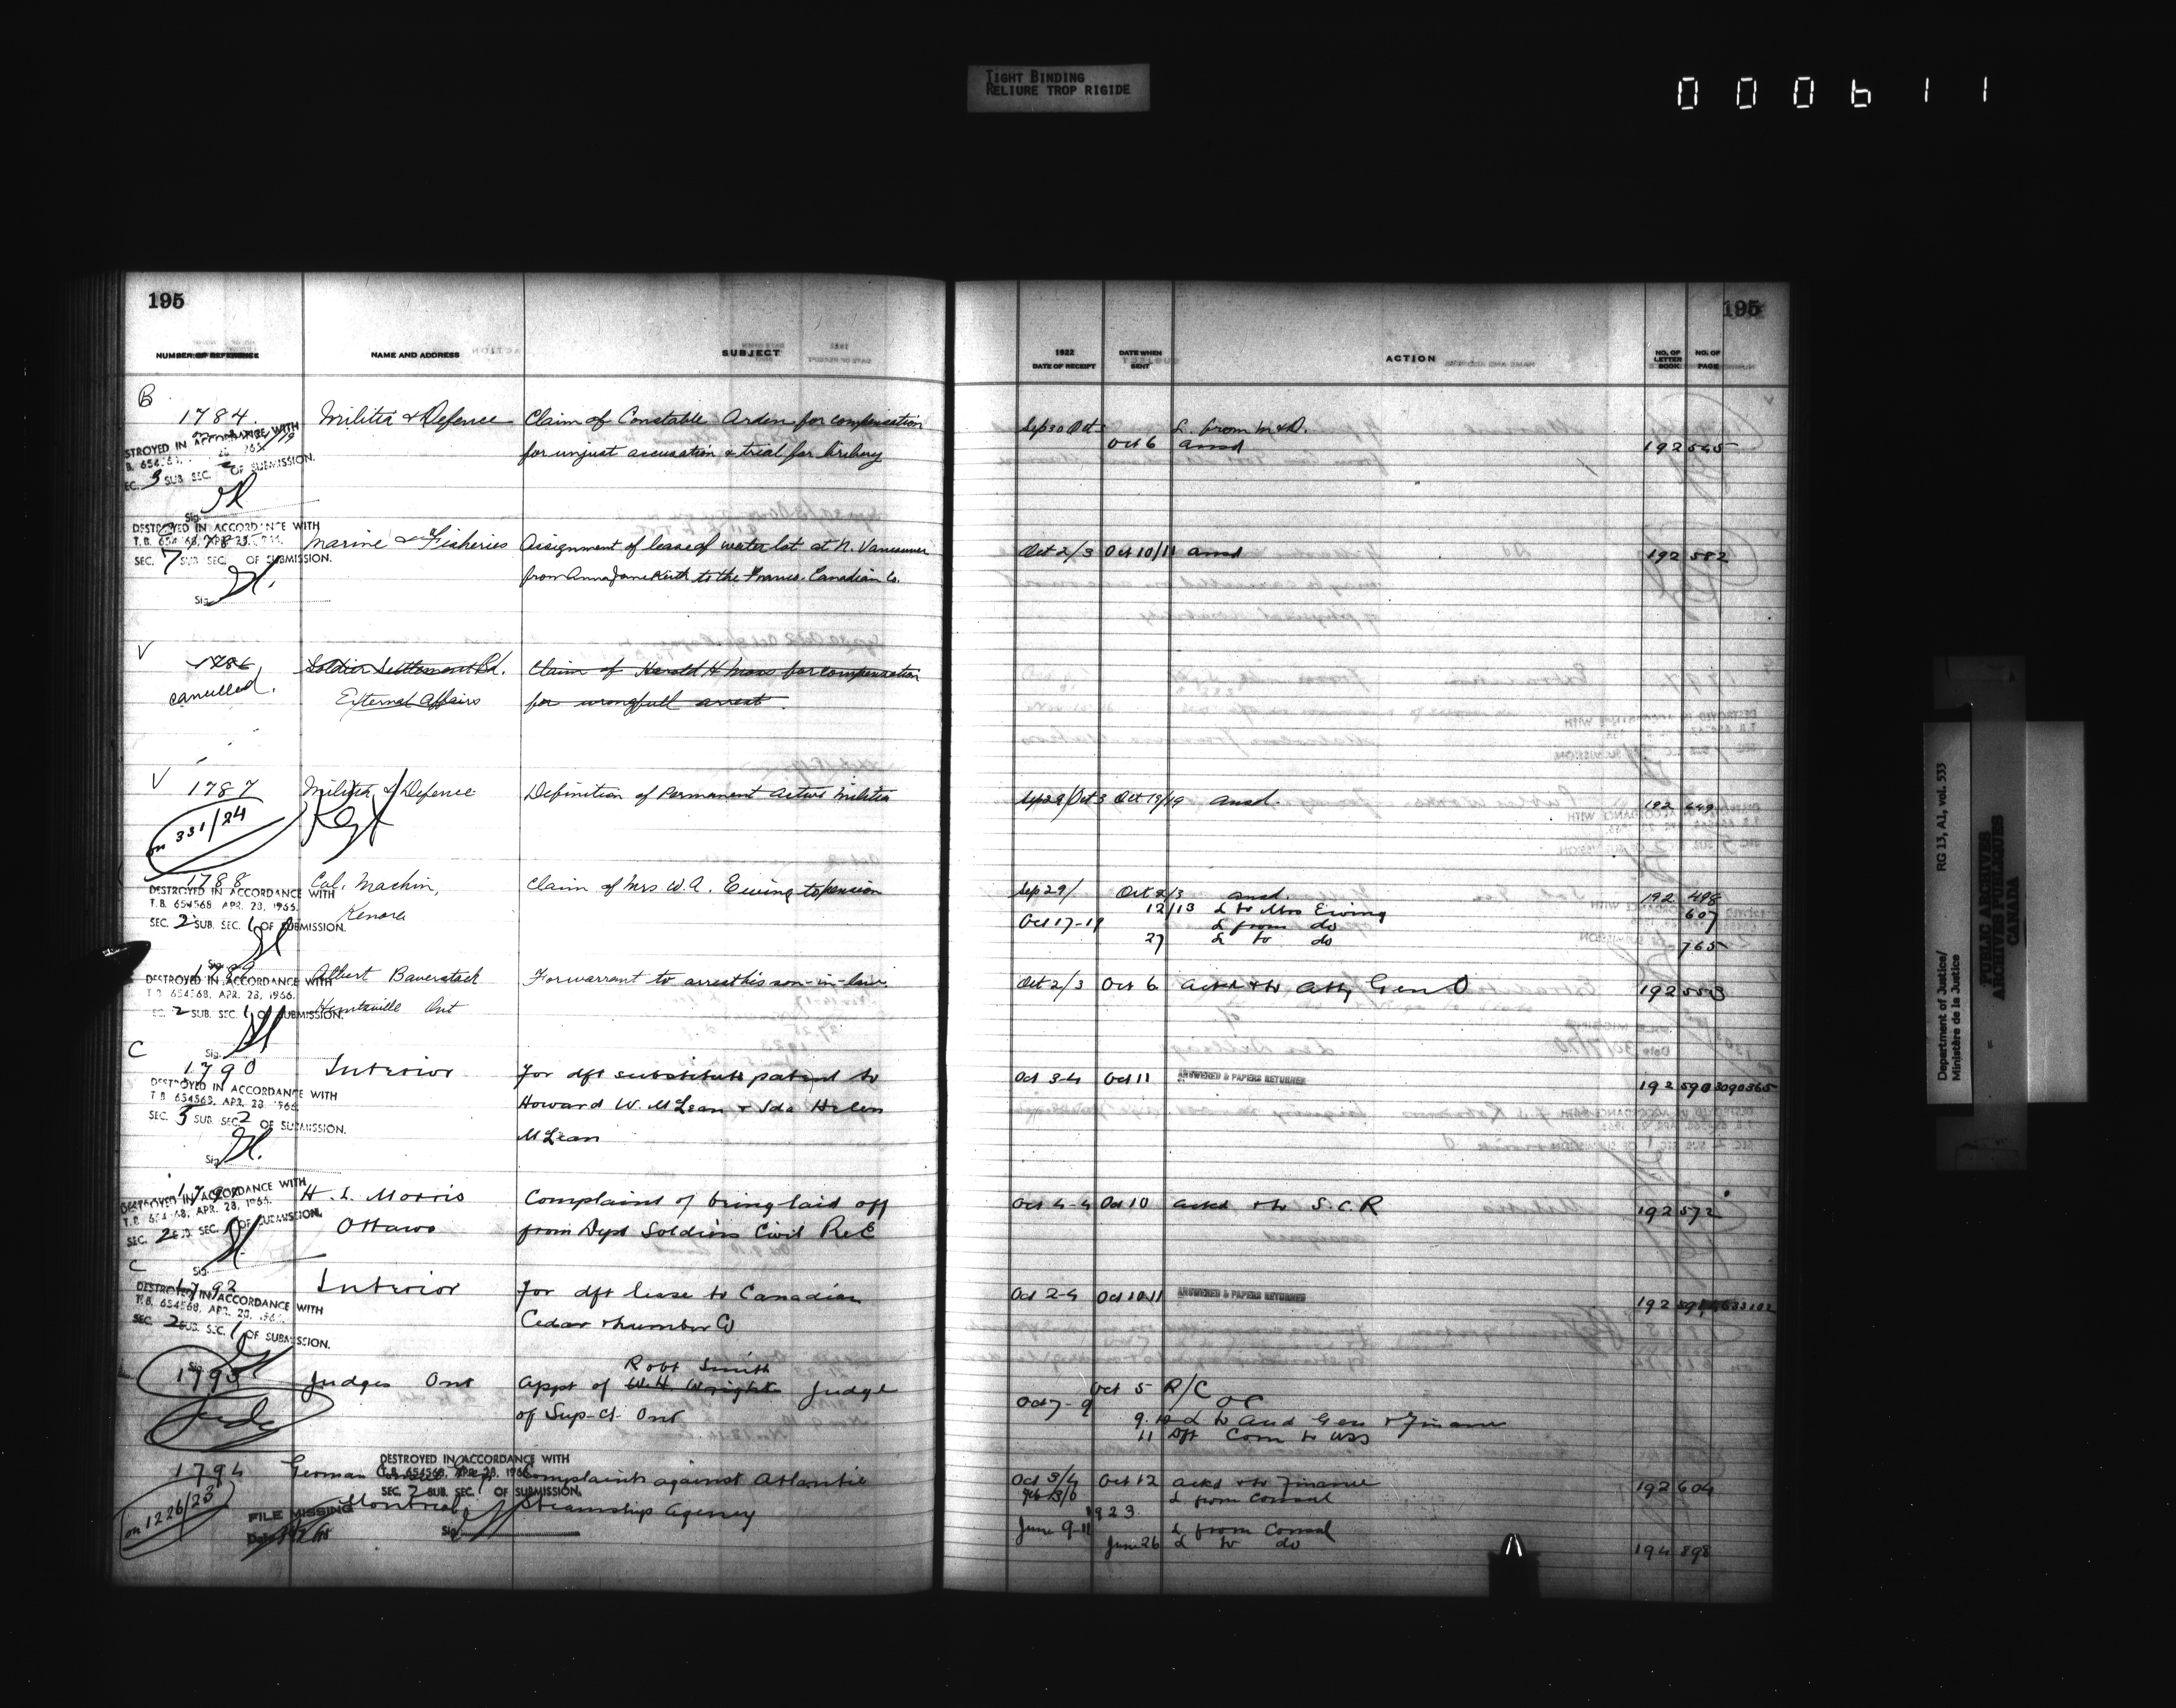 TIGHT BINDING
RELIURE TROP RIGIDE
000611
195
NUMBER OF REFERENCE NAME AND ADDRESS SUBJECT
B
1784. Militia & Defence Claim of Constable Arden for compensation
for unjust accusation & trial for bribery
DESTROYED IN ACCORDANCE WITH
SEC. 3 SUB. SEC. OF SUBMISSION.
Sig.
DESTROYED IN ACCORDANCE WITH
T.B. 654568, APR. 28, 1966.
SEC. 7 SUB. SEC. OF SUBMISSION.
Sig.
Marine & Fisheries Assignment of lease of water lot at N. Vancouver
from Anna Jane Keith to the Franco-Canadian Co.
V
1786 Soldier Settlement Bd. Claim of Harold H Moss for compensation
cancelled. External Affairs for wrongfull arrest.
V
1787 Militia & Defence Definition of Permanent Active Militia
on 331/24
1788 Col. Machin, Claim of Mrs W.A. Ewing to pension
Kenora
DESTROYED IN ACCORDANCE WITH
T.B. 654568, APR. 28, 1966.
SEC. 2 SUB. SEC. 1 OF SUBMISSION.
Sig.
1789 Albert Baverstock For warrant to arrest his son-in-law
Huntsville Ont
DESTROYED IN ACCORDANCE WITH
T.B. 654568, APR. 28, 1966.
SEC. 2 SUB. SEC. 1 OF SUBMISSION.
Sig.
C
1790 Interior For dft substitute patent to
Howard W. McLean & Ida Helen
McLean
DESTROYED IN ACCORDANCE WITH
T.B. 654568, APR. 28, 1966.
SEC. 3 SUB. SEC. 2 OF SUBMISSION.
Sig.
H. L. Morris Complaint of being laid off
Ottawa from Dept Soldiers Civil Re E
DESTROYED IN ACCORDANCE WITH
T.B. 654568, APR. 28, 1966.
SEC. 2 SUB. SEC. 1 OF SUBMISSION.
Sig.
C
1792 Interior For dft lease to Canadian
Cedar & Lumber Co
DESTROYED IN ACCORDANCE WITH
T.B. 654568, APR. 28, 1966.
SEC. 2 SUB. SEC. 1 OF SUBMISSION.
Sig.
Robt Smith
1793 Judges Ont Appt of W.H. Wright Judge
of Sup. Ct. Ont
1794 German Complaint against Atlantic
Montreal Steamship Agency
on 1226/23
DESTROYED IN ACCORDANCE WITH
T.B. 654568, APR. 28, 1966.
SEC. 2 SUB. SEC. 1 OF SUBMISSION.
Sig.
FILE MISSING
195
1922
DATE OF RECEIPT DATE WHEN SENT ACTION NO. OF LETTER BOOK NO. OF PAGE
Sep 30 Oct L. from M & D.
Oct 6 Ansd 192 545
Oct 2/3 Oct 10/11 Ansd 192 582
Sep 29/Oct 3 Oct 19/19 Ansd. 192 449
Sep 29/ Oct 2/3 Ansd. 192 498
12/13 L to Mrs Ewing 607
Oct 17-19 L from do
27 L to do 765
Oct 2/3 Oct 6 Ackd & to Atty Gen O 192 553
Oct 3-4 Oct 11 ANSWERED & PAPERS RETURNED 192 590 3090365
Oct 4-4 Oct 10 Ackd & to S.C.R 192 572
Oct 2-4 Oct 10 11 ANSWERED & PAPERS RETURNED 192
Oct 5 R/C
Oct 7-9 OC
9.10 L to Aud Gen & Finance
11 Dft Com to USS
Oct 3/4 Oct 12 Ackd & to Finance 192 604
L from Consul
1923
June 9-11 L from Consul
June 26 L to do 194 898
Department of Justice/ RG 13, A1, vol. 533
Ministère de la Justice
PUBLIC ARCHIVES
ARCHIVES PUBLIQUES
CANADA